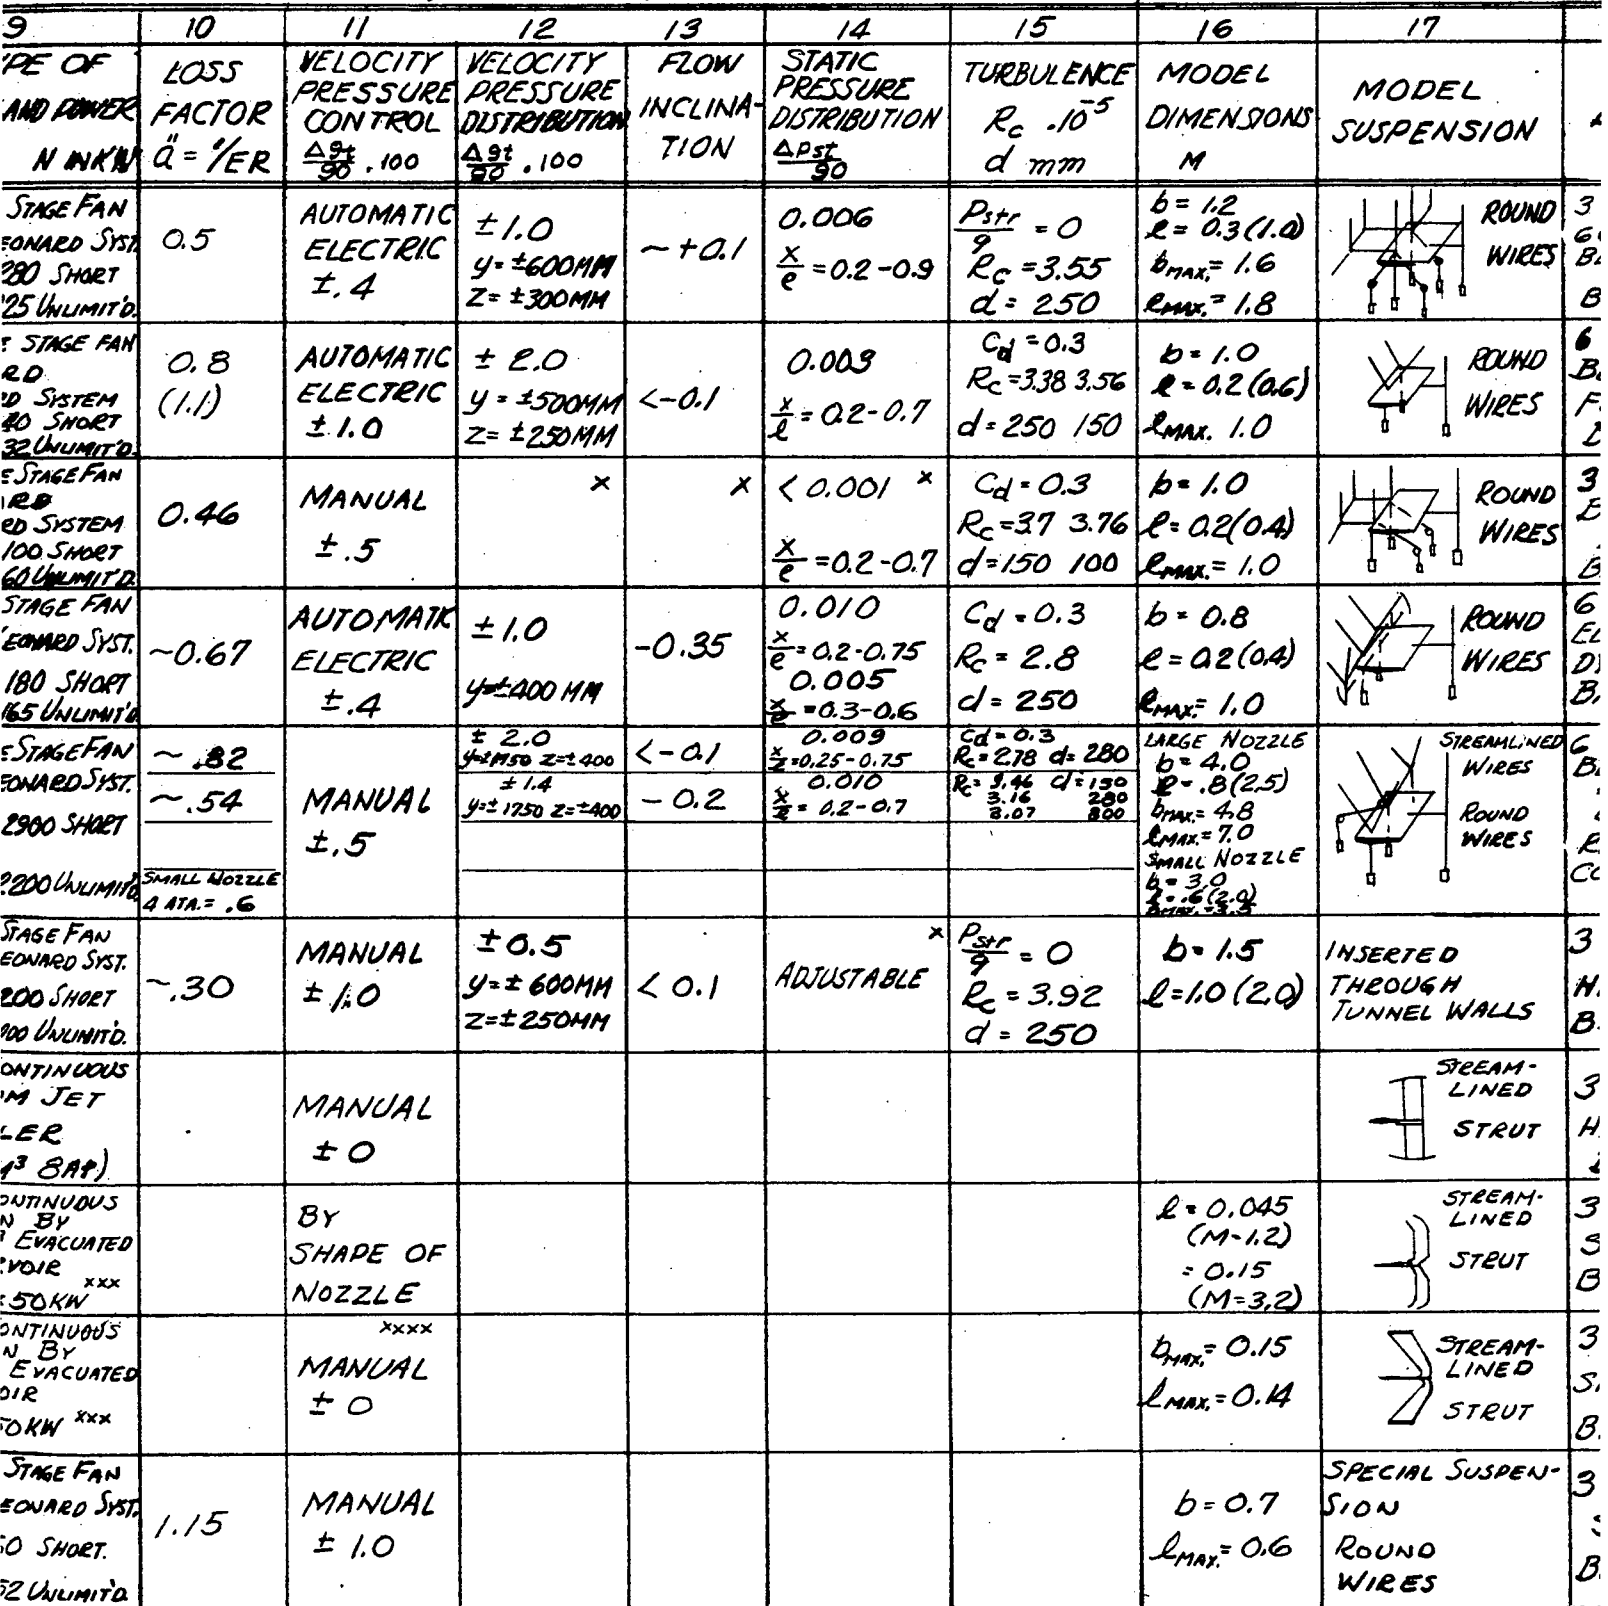 9 10 11 12 13 14 15 16 17
PE OF
AND POWER
N INKW
LOSS
FACTOR
ä = 1/ER
VELOCITY
PRESSURE
CONTROL
Δqt/q0 . 100
VELOCITY
PRESSURE
DISTRIBUTION
Δqt/q0 . 100
FLOW
INCLINA-
TION
STATIC
PRESSURE
DISTRIBUTION
ΔPst/q0
TURBULENCE
Rc .10⁻⁵
d mm
MODEL
DIMENSIONS
M
MODEL
SUSPENSION
STAGE FAN
EONARD SYST.
280 SHORT
25 UNLIMIT'D.
0.5
AUTOMATIC
ELECTRIC
±.4
±1.0
y= ±600MM
Z= ±300MM
~+0.1
0.006
x/e = 0.2-0.9
Pstr/q = 0
Rc = 3.55
d = 250
b = 1.2
l = 0.3(1.0)
bMAX. = 1.6
lMAX. = 1.8
ROUND
WIRES
3
B
STAGE FAN
RD
D SYSTEM
40 SHORT
32 UNLIMIT'D.
0.8
(1.1)
AUTOMATIC
ELECTRIC
±1.0
± 2.0
y = ±500MM
Z= ±250MM
<-0.1
0.003
x/l = 0.2-0.7
Cd = 0.3
Rc = 3.38 3.56
d = 250 150
b = 1.0
l = 0.2(0.6)
lMAX. 1.0
ROUND
WIRES
6
E STAGE FAN
RD
RD SYSTEM
100 SHORT
60 UNLIMIT'D.
0.46
MANUAL
±.5
x
x
< 0.001 x
x/e = 0.2-0.7
Cd = 0.3
Rc = 3.7 3.76
d = 150 100
b = 1.0
l = 0.2(0.4)
lMAX. = 1.0
ROUND
WIRES
3
B
STAGE FAN
EONARD SYST.
180 SHORT
165 UNLIMIT'D
~0.67
AUTOMATIC
ELECTRIC
±.4
±1.0
y=±400 MM
-0.35
0.010
x/e = 0.2-0.75
0.005
x/e = 0.3-0.6
Cd = 0.3
Rc = 2.8
d = 250
b = 0.8
l = 0.2(0.4)
lMAX. = 1.0
ROUND
WIRES
6
E STAGE FAN
EONARD SYST.
2900 SHORT
2200 UNLIMIT'D
~ .82
~ .54
SMALL NOZZLE
4 ATA. = .6
MANUAL
±.5
± 2.0
Z=±400
± 1.4
y=± 1750 Z=±400
<-0.1
-0.2
0.009
=0.25-0.75
0.010
= 0.2-0.7
Cd = 0.3
Rc = 2.78 d = 280
Rc = 3.46 d = 150
3.16 280
3.07 800
LARGE NOZZLE
b = 4.0
l = .8(2.5)
bMAX. = 4.8
lMAX. = 7.0
SMALL NOZZLE
b = 3.0
l = .6(2.0)
STREAMLINED
WIRES
ROUND
WIRES
6
STAGE FAN
EONARD SYST.
200 SHORT
UNLIMIT'D.
~.30
MANUAL
± 1.0
±0.5
y=± 600MM
Z=±250MM
< 0.1
x
ADJUSTABLE
Pstr/q = 0
Rc = 3.92
d = 250
b = 1.5
l = 1.0(2.0)
INSERTED
THROUGH
TUNNEL WALLS
3
H.
B.
ONTINUOUS
M JET
LER
M³ 8AP)
MANUAL
± 0
STREAM-
LINED
STRUT
3
H
ONTINUOUS
N BY
EVACUATED
VOIR
50KW xxx
BY
SHAPE OF
NOZZLE
l = 0.045
(M-1.2)
= 0.15
(M=3.2)
STREAM-
LINED
STRUT
3
S
B
ONTINUOUS
N BY
EVACUATED
OIR
50KW xxx
xxxx
MANUAL
± 0
bMAX. = 0.15
lMAX. = 0.14
STREAM-
LINED
STRUT
3
S
B.
STAGE FAN
EONARD SYST.
50 SHORT.
52 UNLIMIT'D.
1.15
MANUAL
± 1.0
b = 0.7
lMAX. = 0.6
SPECIAL SUSPEN-
SION
ROUND
WIRES
3
B.